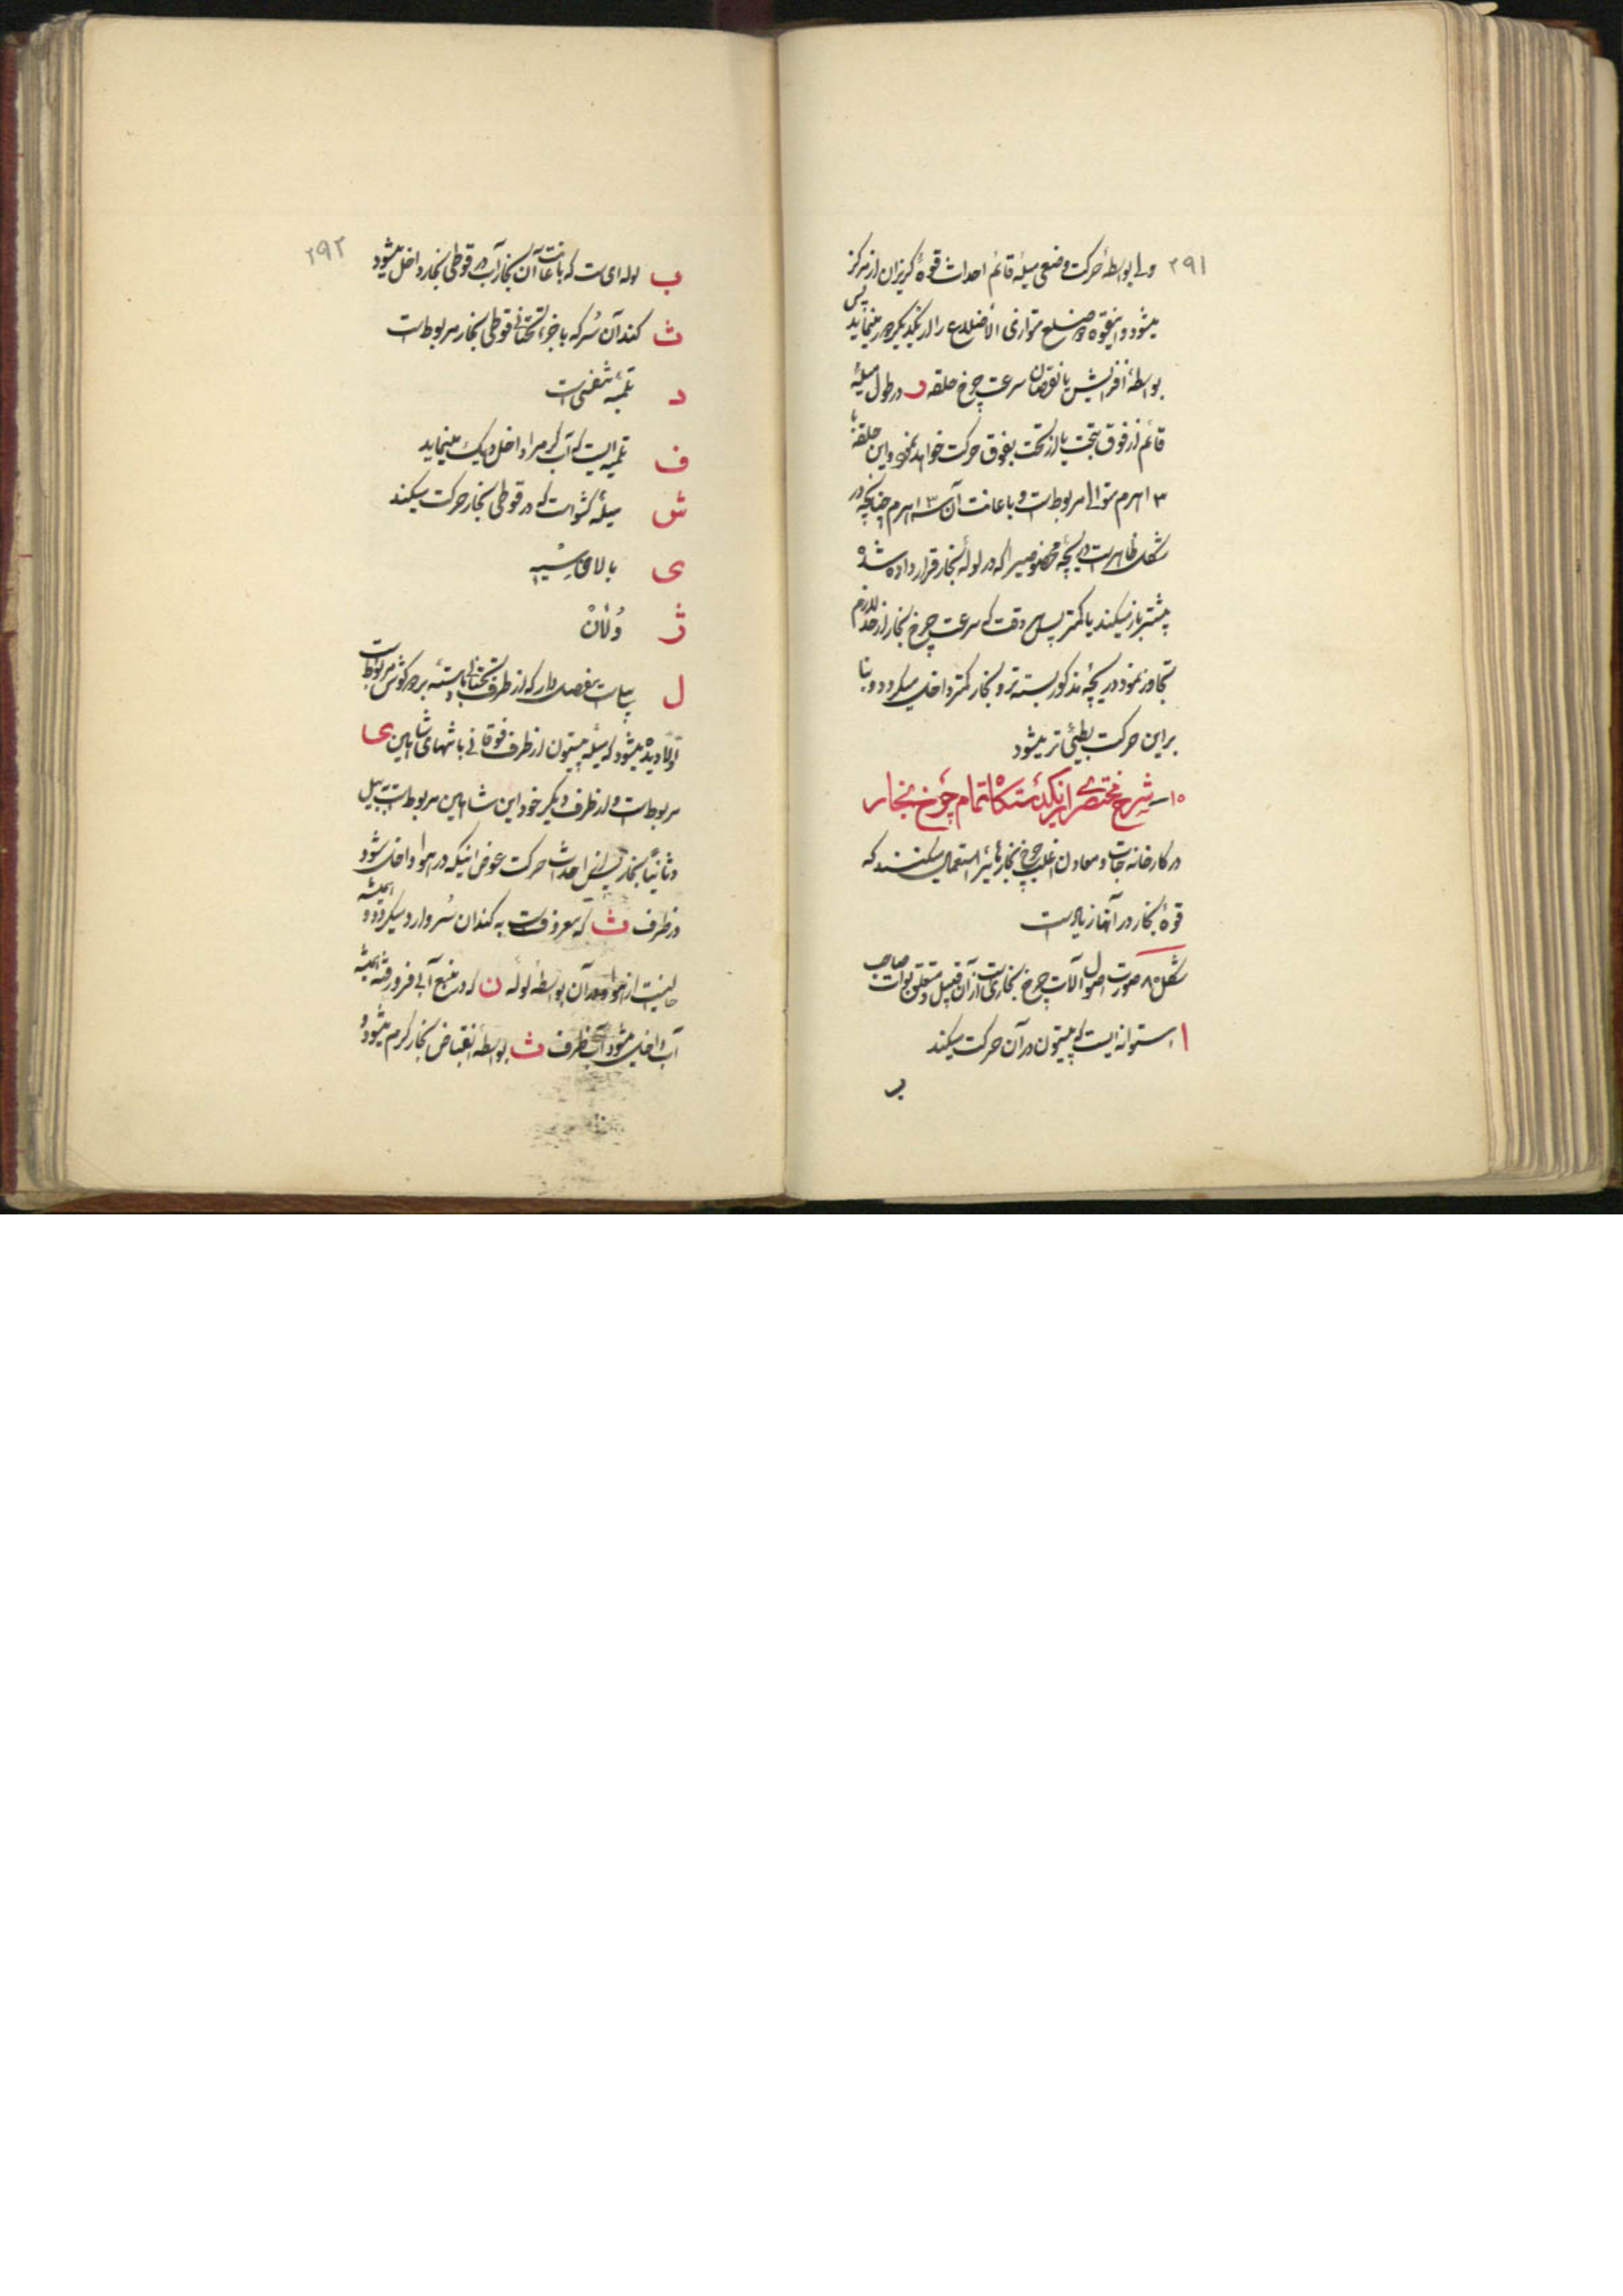 ۲۹۱
ولی بواسطهٔ حرکت وضعی میلهٔ قائم احداث قوهٔ گریزان از مرکز
میشود و اینقوه ضلع متوازی الأضلاع را از یکدیگر دور مینماید پس
بواسطهٔ افزایش یا نقصان سرعت چرخ حلقه د در طول میلهٔ
قائم از فوق بتحت یا از تحت بفوق حرکت خواهد نمود و این حلقه با
۳ اهرم متوالی مربوط است و با عانت آن ۳ اهرم چنانچه در
شکل ظاهر است دریچهٔ مخصوصیرا که در لولهٔ بخار قرار داده شده
بیشتر باز میکند یا کمتر پس هر وقت که سرعت چرخ بخار از حد لازم
تجاوز نمود دریچهٔ مذکور بسته‌تر و بخار کمتر داخل میگردد و بنا
براین حرکت بطیٔی‌تر میشود
۱۵- شرح مختصری از یکدستگاه تمام چرخ بخار
در کارخانه جات و معادن اغلب چرخ بخار هائیرا استعمال میکنند که
قوهٔ بخار در آنها زیاد است
شکل ۸ صورت اصول آلات چرخ بخاریست از آن قبیل و متعلق بوات صاحب
ا استوانه ایست که پیستون در آن حرکت میکند
ب
۲۹۲
ب لوله‌ای ست که با عانت آن بخار آب در قوطی بخار داخل میشود
ث کندآن سُر که با جزء تحتانی قوطی بخار مربوط است
د تلمبهٔ تنفسی است
ف تلمبه ایست که آب گرم را داخل دیک مینماید
ش میلهٔ کشو است که در قوطی بخار حرکت میکند
ی بالا قاسیه
ژ وُلان
ل بیل است مفصل دار که از طرف تحتانی با دستهٔ بردرگوش مربوط است
اولاً دیده میشود که میلهٔ پیستون از طرف فوقانی با شهای شاهین ی
مربوط است و از طرف دیگر خود این شاهین مربوط است به بیل
و ثانیاً بخار پس از احداث حرکت عوض اینکه در هوا داخل شود
در ظرف ث که معروف است به کندان سُر وارد میگردد و همیشه
خالیست از هوا و در آن بواسطهٔ لولهٔ ن که در منبع آبی فرو رفته همیشه
آب داخل میشود آب ظرف ث بواسطهٔ انقباض بخار گرم میشود و